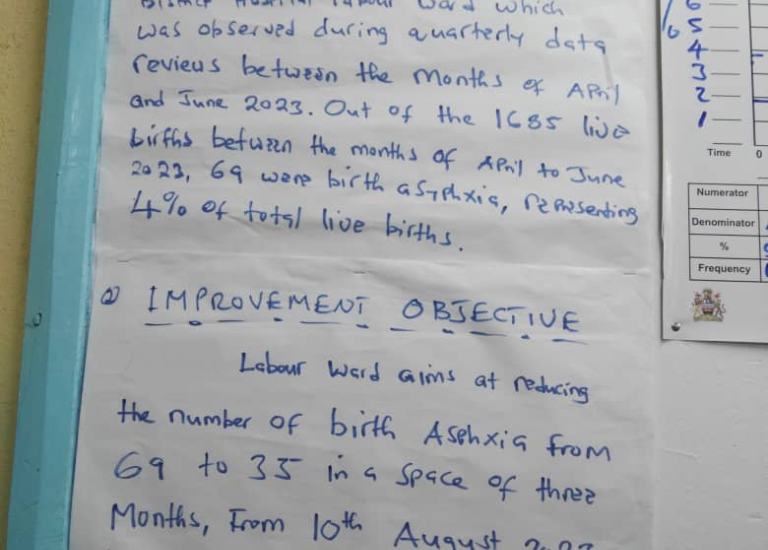 Hospital Labour Ward which
was observed during quarterly data
reviews between the months of April
and June 2023. Out of the 1685 live
births between the months of April to June
2023, 69 were birth asyphxia, representing
4% of total live births.
IMPROVEMENT OBJECTIVE
Labour Ward aims at reducing
the number of birth Asphxia from
69 to 35 in a space of three
Months, From 10th August
6
5
4
3
2
1
Time 0
Numerator
Denominator
%
Frequency